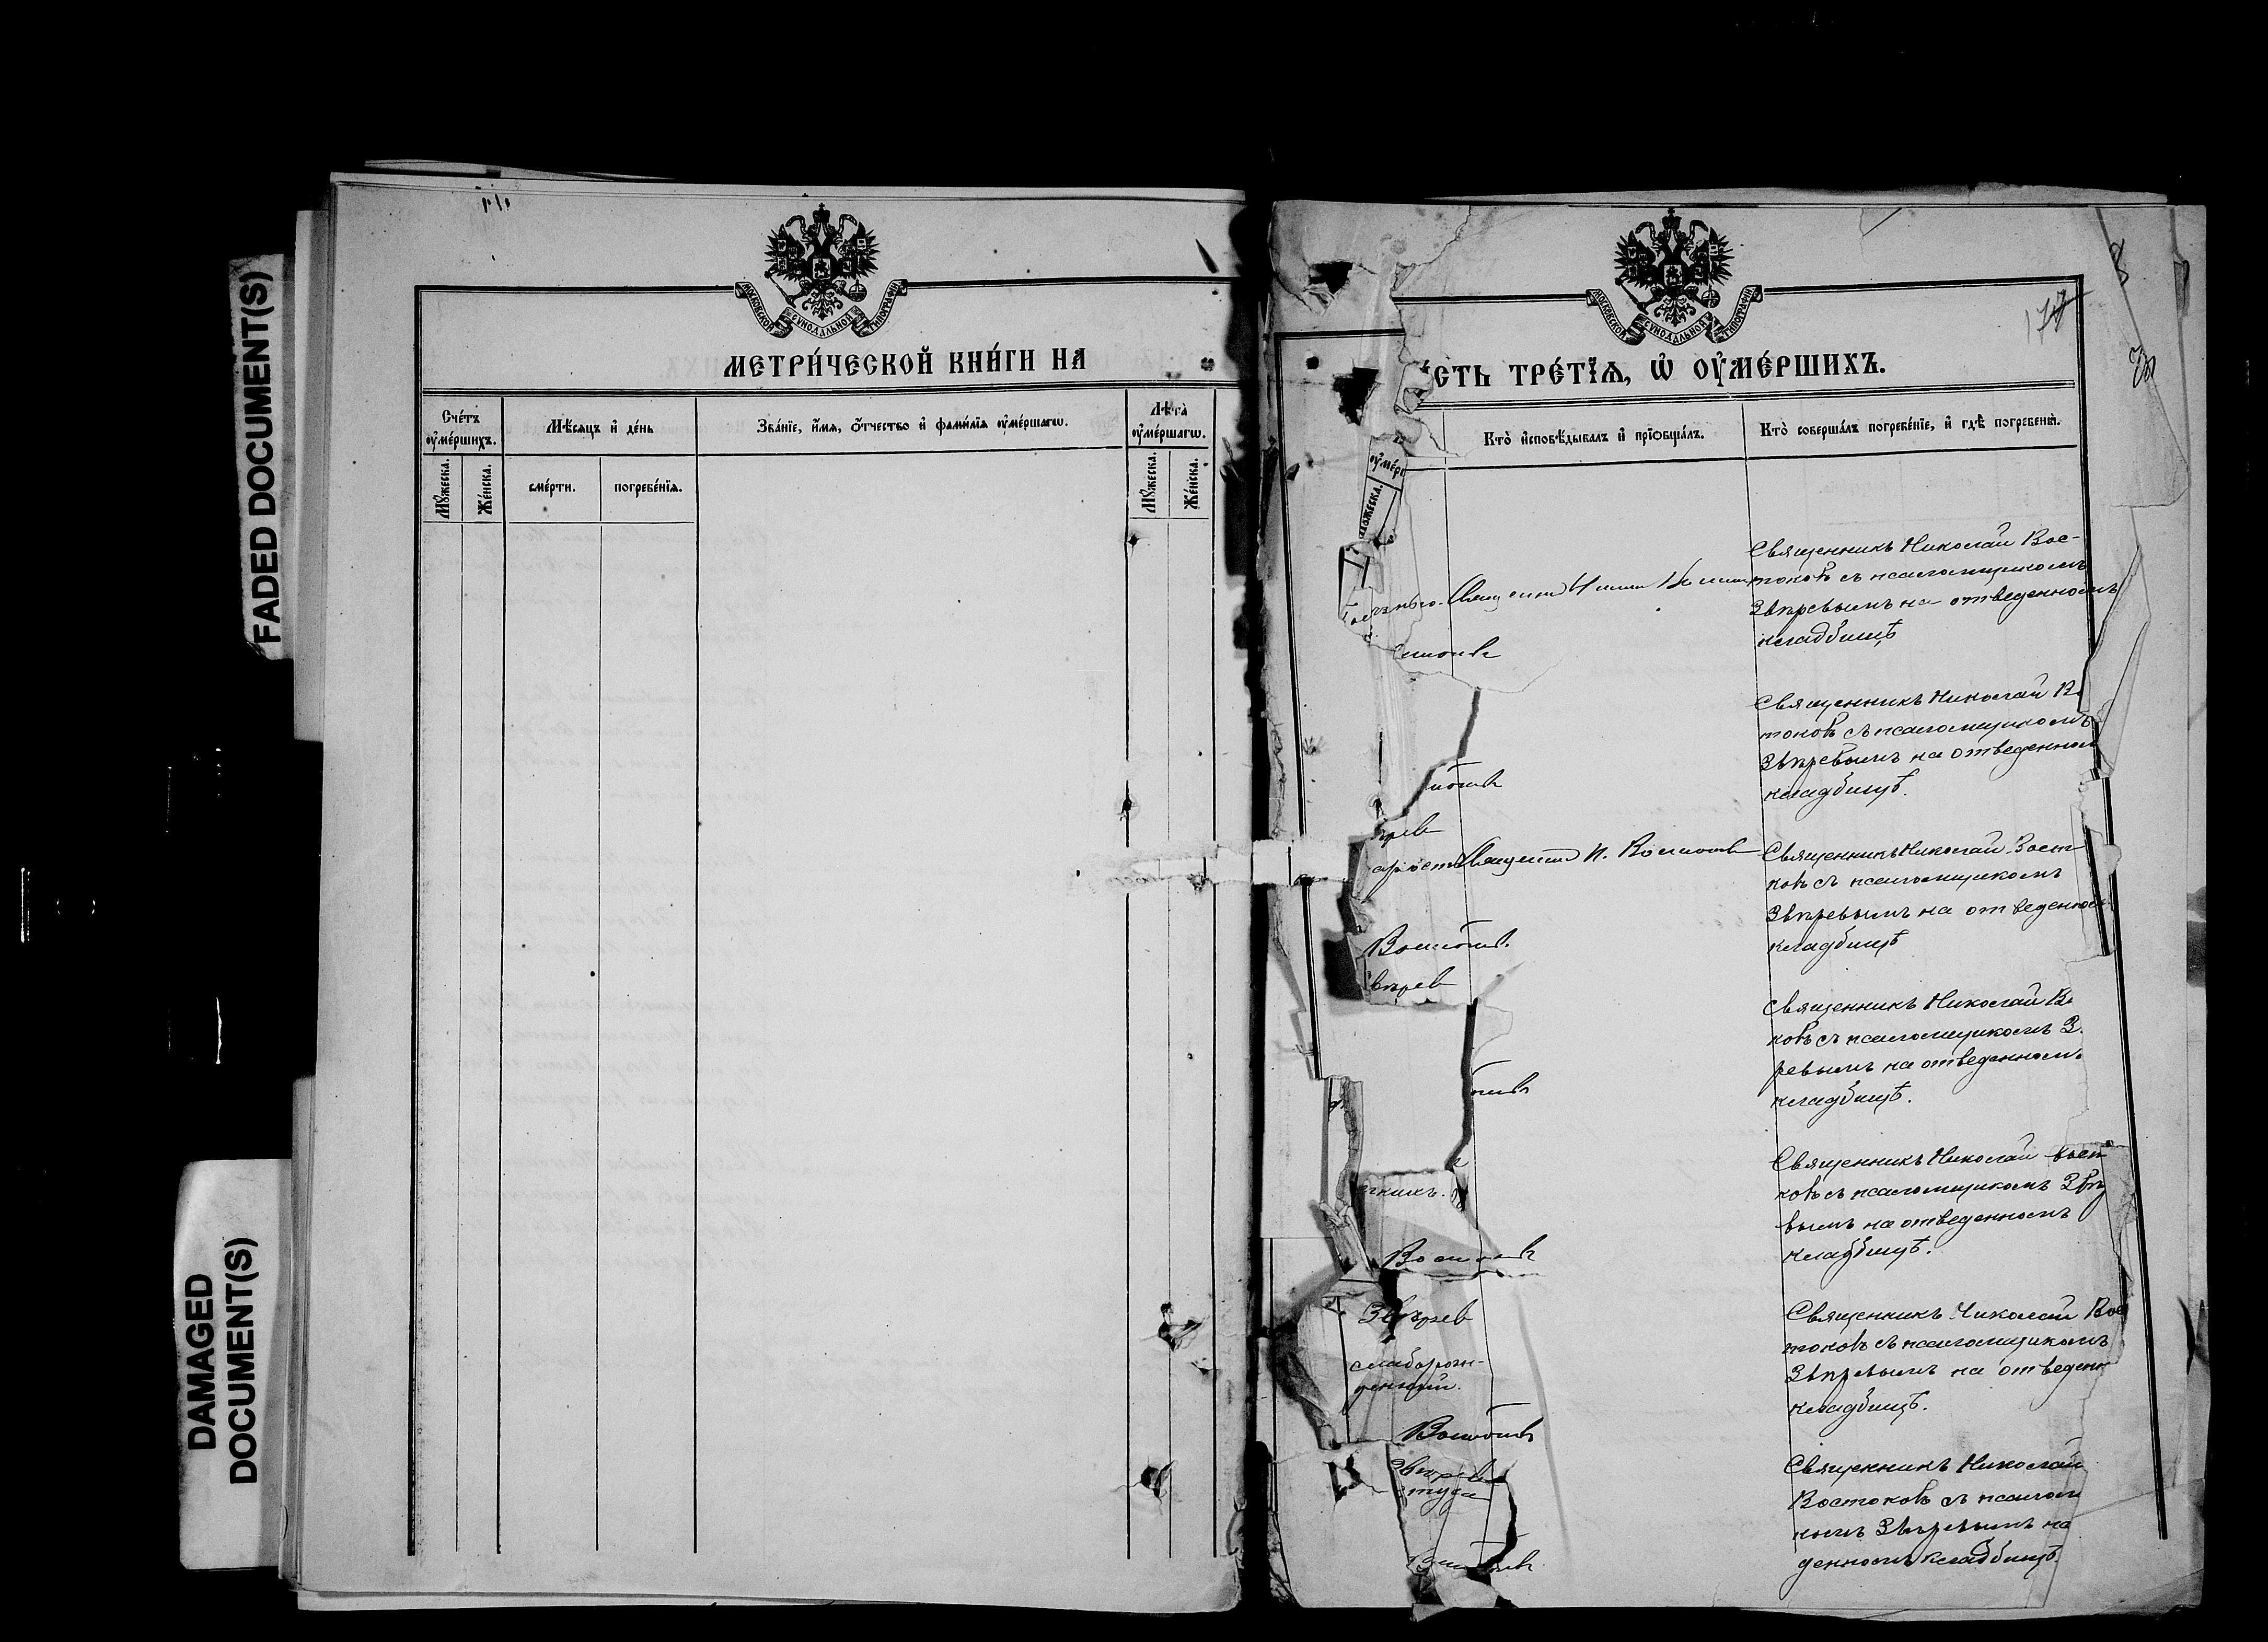 FADED DOCUMENT(S)
DAMAGED
DOCUMENT(S)
МОСКОВСКОЙ СѴНОДАЛЬНОЙ ТИПОГРАФІИ
МЕТРИ́ЧЕСКОЙ КНИ́ГИ НА
Сче́тъ
оу҆ме́ршихъ.
Мѣ́сяцъ и҆ де́нь
Зва́нїе, и҆́мя, ѻ҆́тчество и҆ фами́лїя оу҆ме́ршагѡ.
Лѣ́та
оу҆ме́ршагѡ.
Мꙋ́жеска.
Же́нска.
сме́рти.
погребе́нїя.
Мꙋ́жеска.
Же́нска.
МОСКОВСКОЙ СѴНОДАЛЬНОЙ ТИПОГРАФІИ
8
СТЬ ТРЕ́ТЇѦ, Ѡ҆ ОУ҆МЕ́РШИХЪ.
Кто̀ и҆сповѣ́дывалъ и҆ прїѡбща́лъ.
Кто̀ соверша́лъ погребе́нїе, и҆ гдѣ̀ погребены̀.
оу҆ме́р
Священникъ Николай Вос-
токовъ съ псаломщикомъ
Звѣревымъ на отведенномъ
кладбищѣ
Священникъ Николай В
токовъ съ псаломщикомъ
Звѣревымъ на отведенном
кладбищѣ.
рев
Священникъ Николай Вост
ковъ съ псаломщикомъ
Звѣревымъ на отведенном
кладбищѣ
Востоковъ
вѣрев
Священникъ Николай В
ковъ съ псаломщикомъ З
ревымъ на отведенном
кладбищѣ.
Священникъ Николай Вост
ковъ съ псаломщикомъ Звѣ
вымъ на отведенномъ
кладбищѣ.
Востоковъ
Звѣрев
слаборож-
денный.
Священникъ Николай Вос
токовъ съ псаломщикомъ
Звѣревымъ на отведенн
кладбищѣ.
Востоковъ
Звѣрев
Священникъ Николай
Востоковъ съ псалом
комъ Звѣревымъ на
денномъ кладбищѣ.